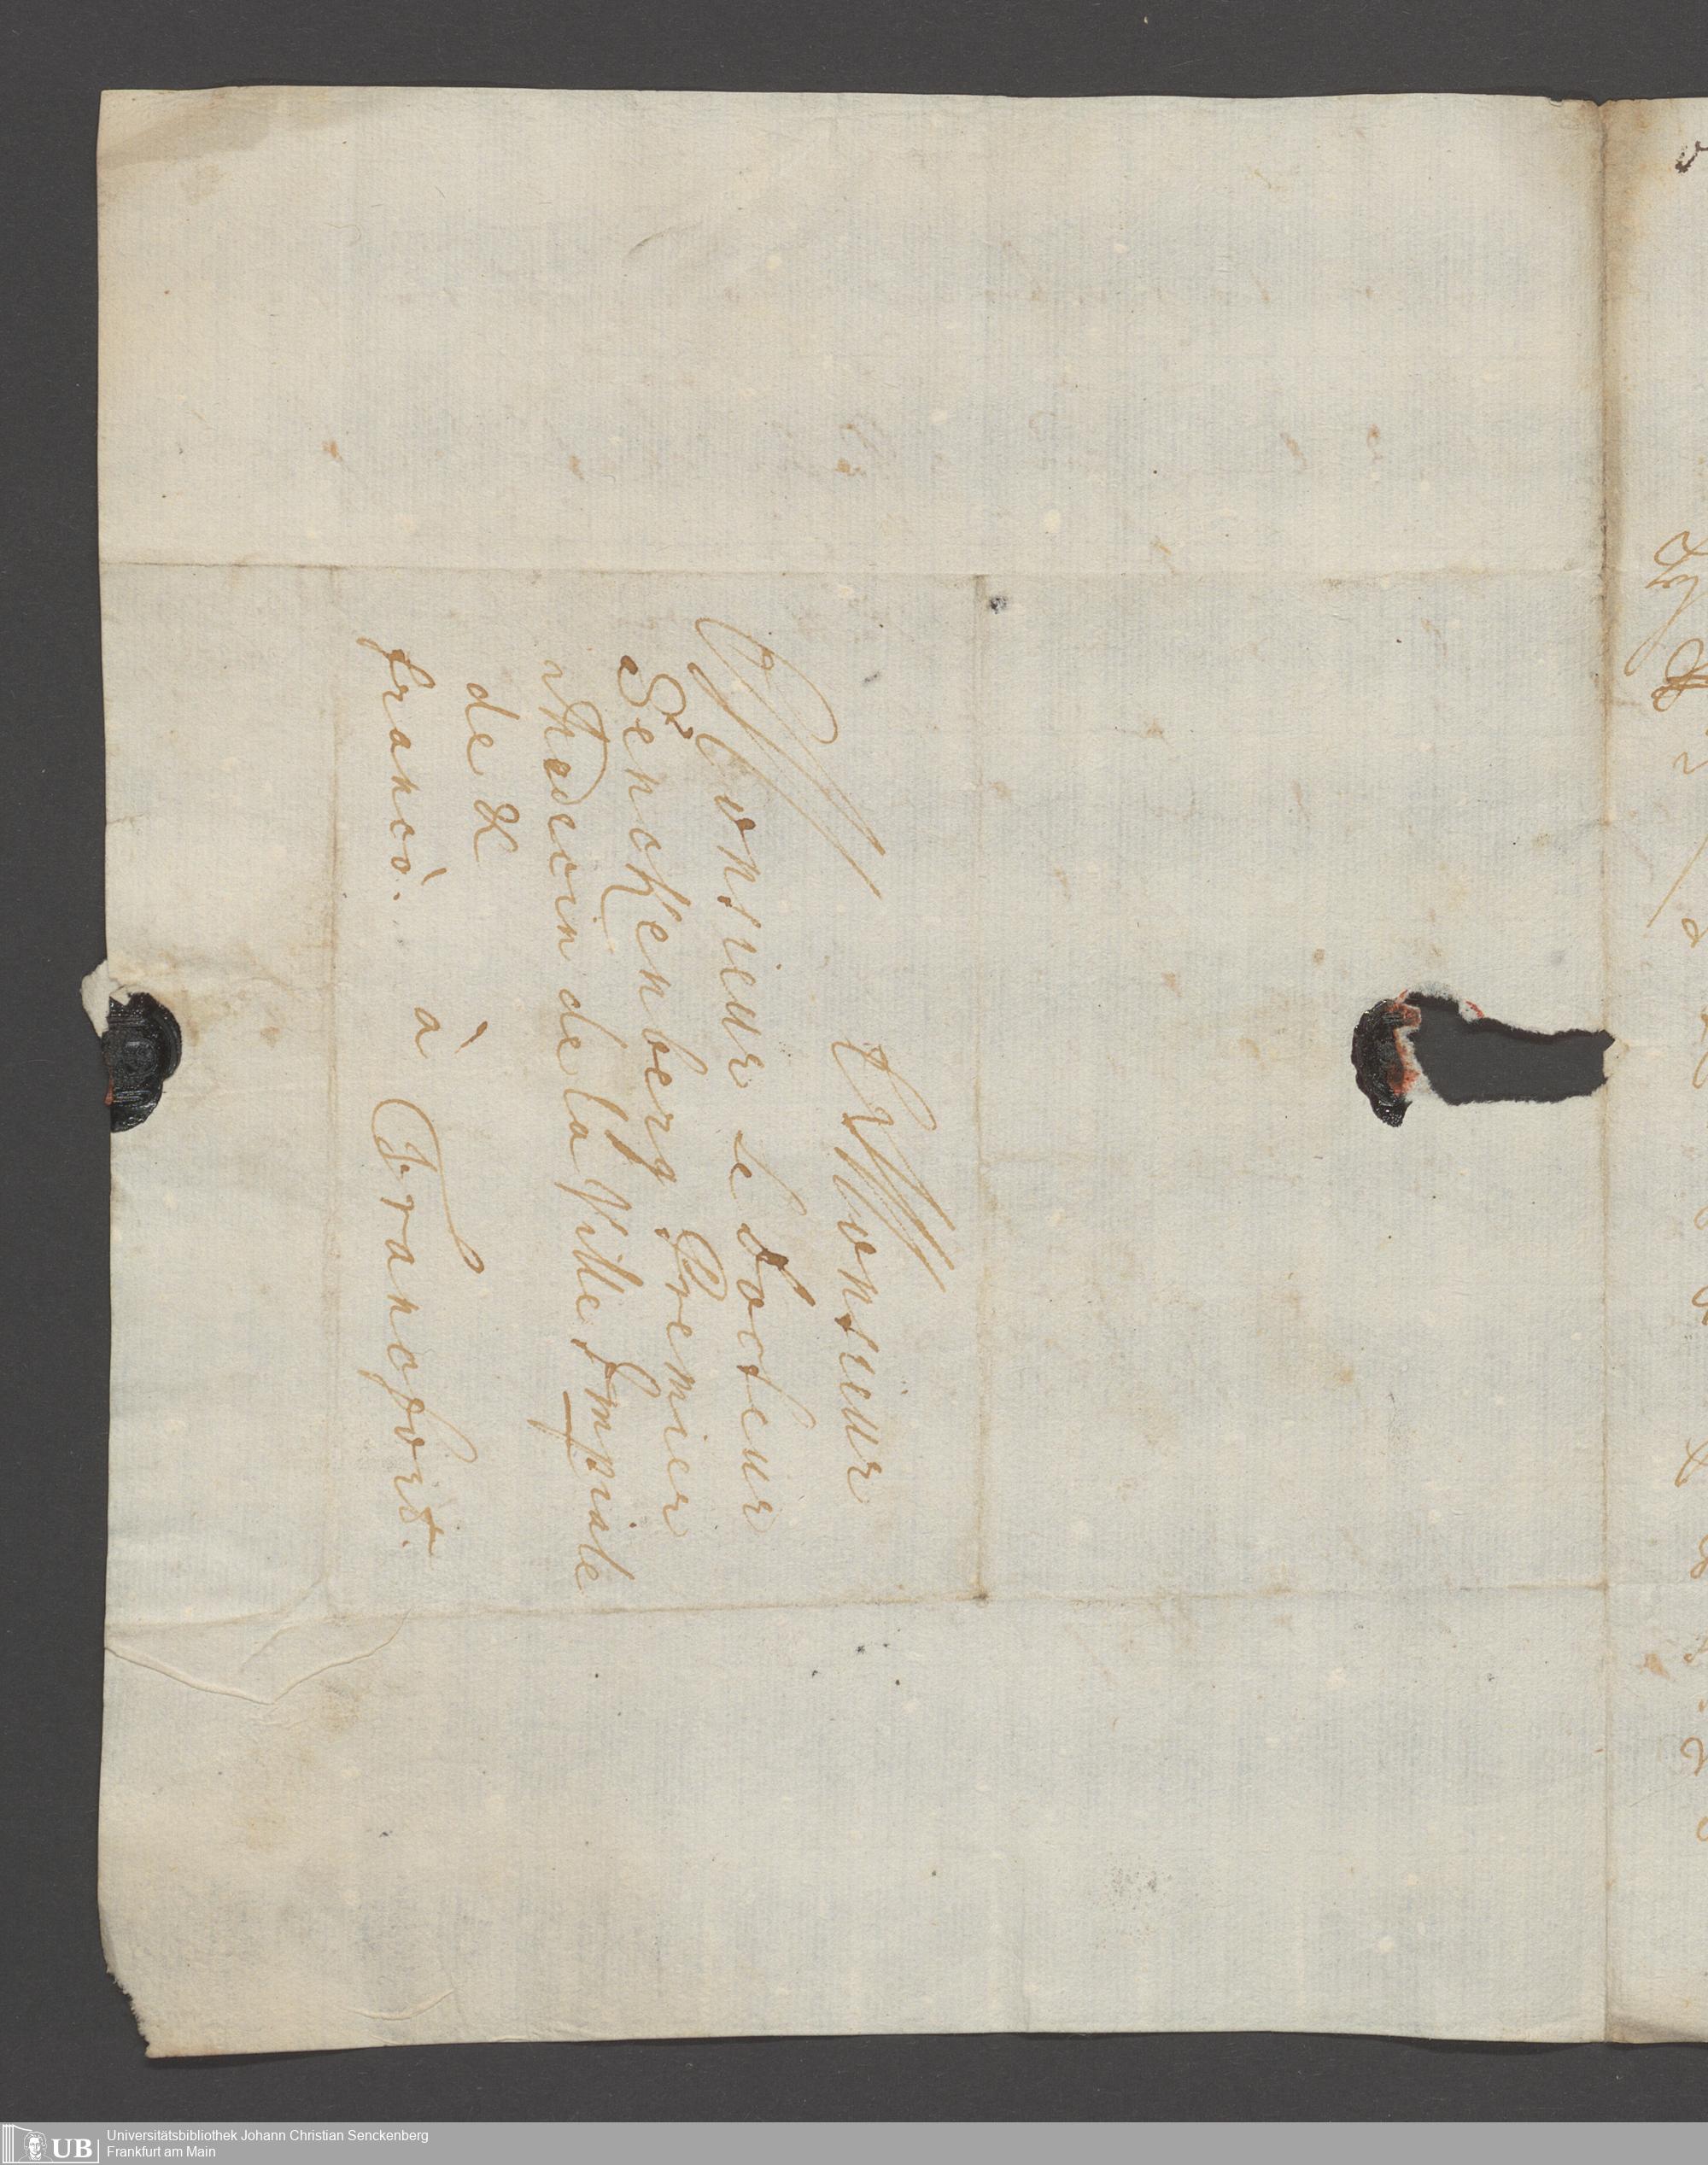 Monsieur
Monsieur le Docteur
de Senckenberg Premier
Medecin de la Ville Impiale
de &
franco. à Francfort.
Universitätsbibliothek Johann Christian Senckenberg
Frankfurt am Main
UB